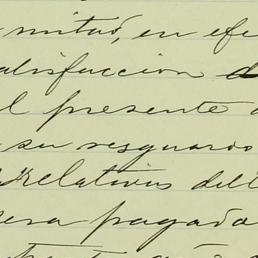 mitad, en efe
atisfaccion d
l presente
su resguardo
relativas del
era pagada